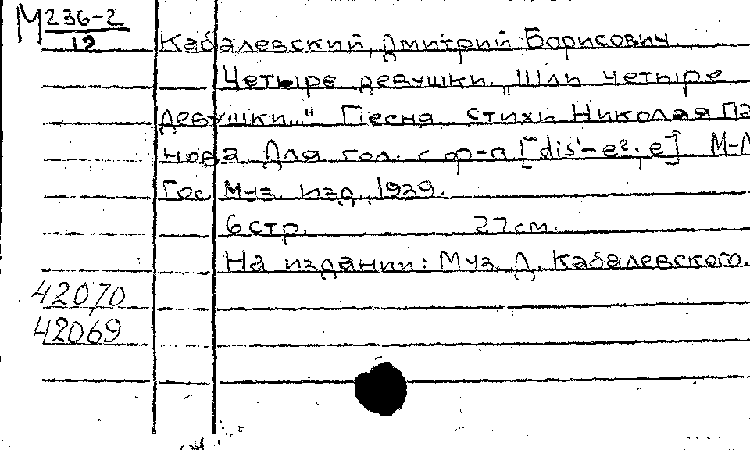 М 236-2
12
Кабалевский, Дмитрий Борисович
Четыре девушки. „Шли четыре
девушки..." Песня. Стихи Николая Па
нова. Для гол. с ф-п [dis'-e²; e] М-Л
Гос. Муз. изд., 1939.
6 стр. 27 см.
На издании: Муз. Д. Кабалевского.
42070
42069